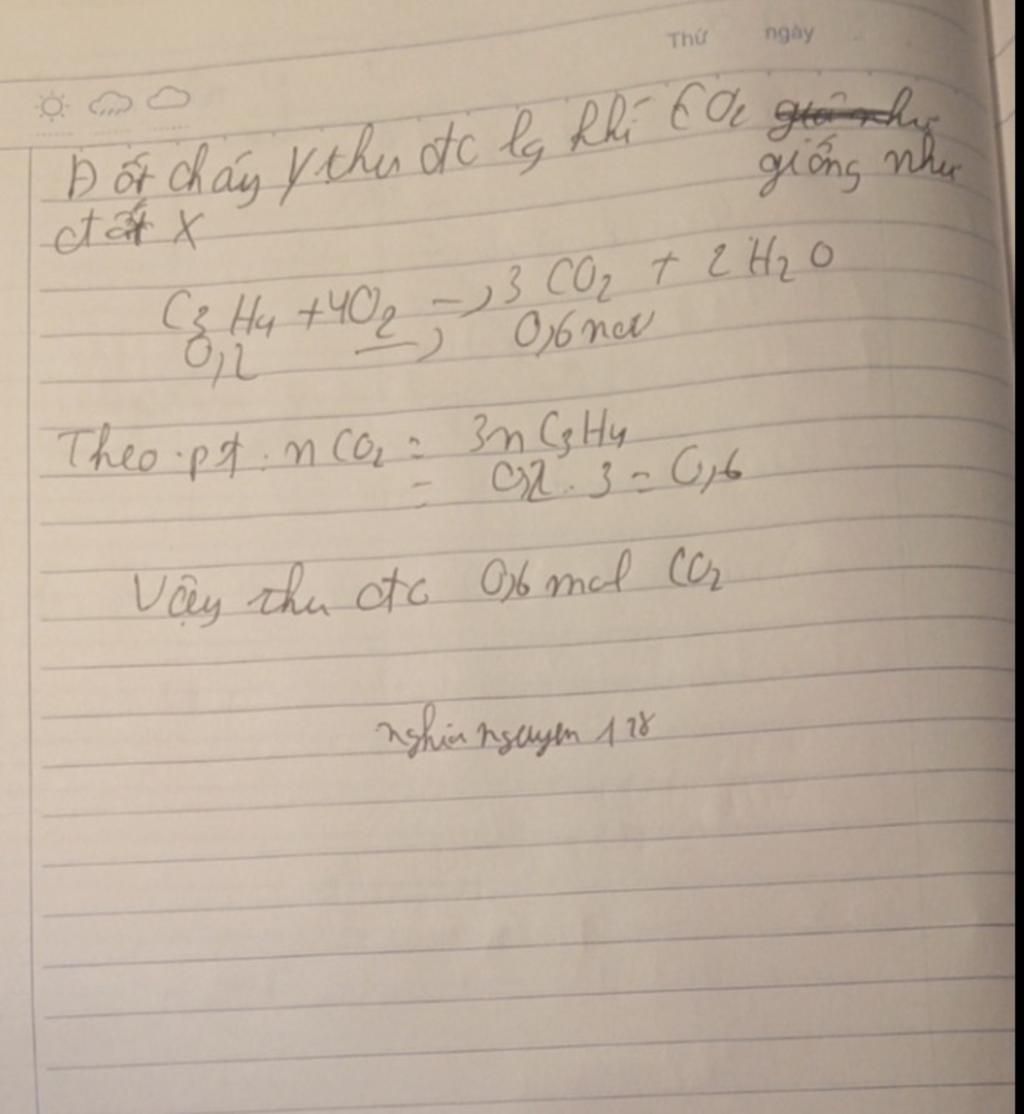 Thứ ngày
Đốt cháy Y thu đc lg khí CO2
giống như
đốt X
C3H4 + 4O2 → 3CO2 + 2H2O
0,2 → 0,6 mol
Theo pt: nCO2 = 3nC3H4
= 0,2 . 3 = 0,6
Vậy thu đc 0,6 mol CO2
nghia nguyen 128